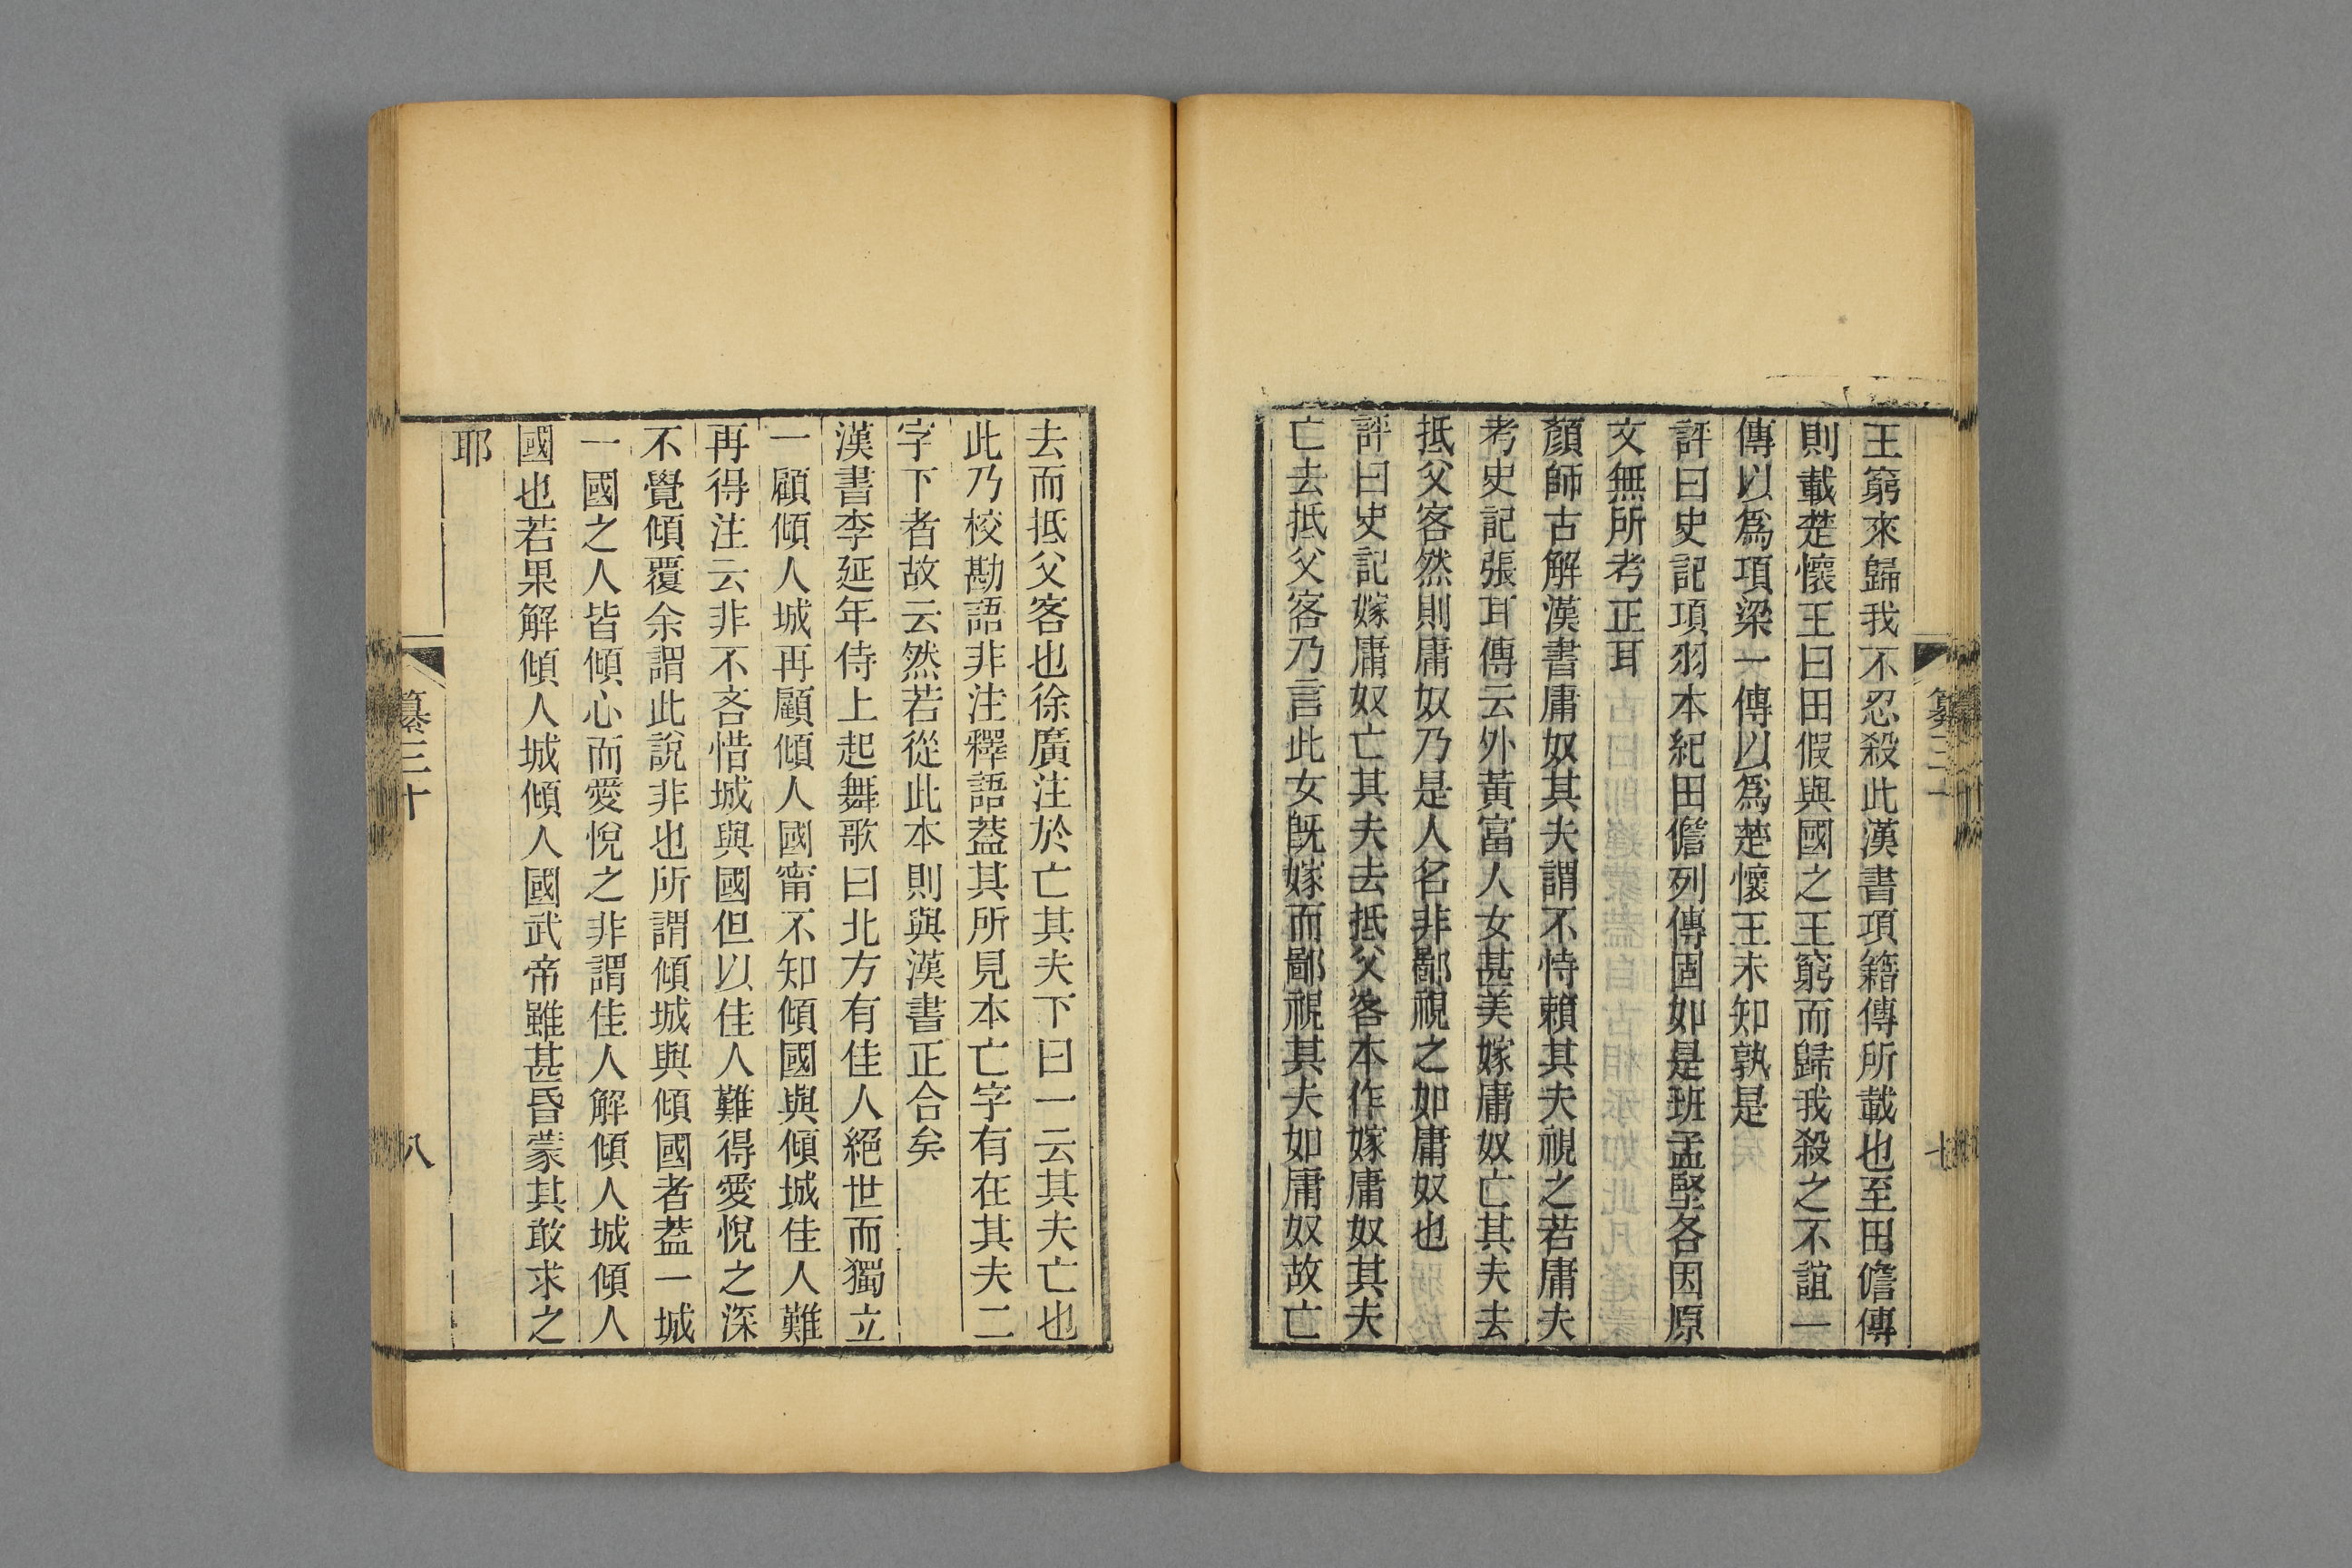 王窮來歸我不忍殺此漢書項籍傳所載也至田儋傳
則載楚懷王曰田假與國之王窮而歸我殺之不誼一
傳以爲項梁一傳以爲楚懷王未知孰是
評曰史記項羽本紀田儋列傳固如是班孟堅各因原
文無所考正耳
顏師古解漢書庸奴其夫謂不恃賴其夫視之若庸夫
考史記張耳傳云外黃富人女甚美嫁庸奴亡其夫去
抵父客然則庸奴乃是人名非鄙視之如庸奴也
評曰史記嫁庸奴亡其夫去抵父客本作嫁庸奴其夫
亡去抵父客乃言此女旣嫁而鄙視其夫如庸奴故亡
去而抵父客也徐廣注於亡其夫下曰一云其夫亡也
此乃校勘語非注釋語葢其所見本亡字有在其夫二
字下者故云然若從此本則與漢書正合矣
漢書李延年侍上起舞歌曰北方有佳人絕世而獨立
一顧傾人城再顧傾人國甯不知傾國與傾城佳人難
再得注云非不吝惜城與國但以佳人難得愛悅之深
不覺傾覆余謂此說非也所謂傾城與傾國者葢一城
一國之人皆傾心而愛悅之非謂佳人解傾人城傾人
國也若果解傾人城傾人國武帝雖甚昏蒙其敢求之
耶
纂三十
八